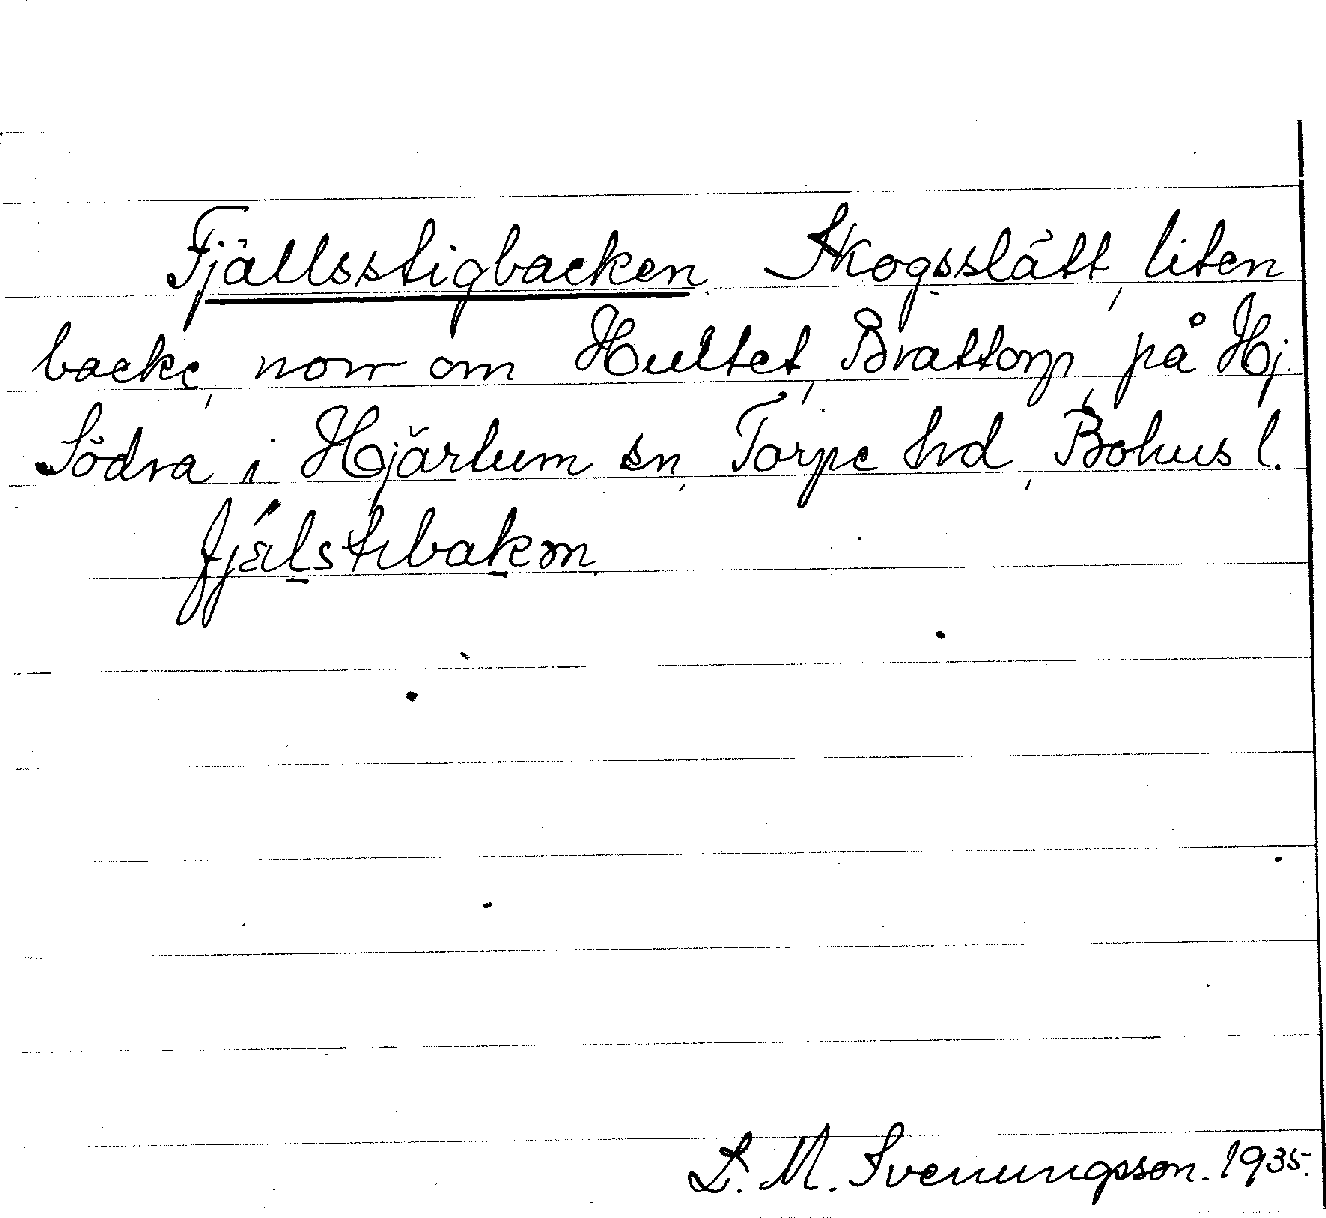 Fjällsstigbacken Skogsslätt, liten
backe, norr om Hultet, Brattorp, på Hj.
Södra i Hjärtum sn, Torpe hd, Bohus l.
fjälstibakǝn
S. M. Svenungsson. 1935.